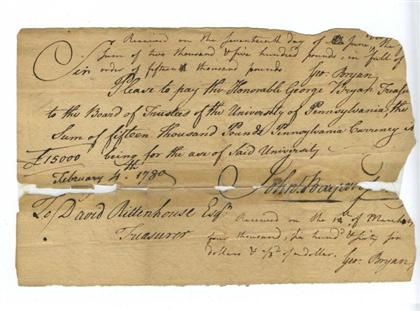 Received on the seventeenth day of June, the
Sum of two thousand & five hundred pounds, in full of
order of fifteen thousand pounds
Geo: Bryan
Sir
Please to pay the Honorable George Bryan Treasr
to the Board of Trustees of the University of Pennsylvania, the
Sum of fifteen thousand Pounds Pennsylvania Currency
£15000 being for the use of Said University
February 4th 1780
To David Rittenhouse Esqr
Treasurer
Received on the 1st of March
four thousand, six hundd & sixty six
dollars & 2/3ds of a dollar. Geo: Bryan